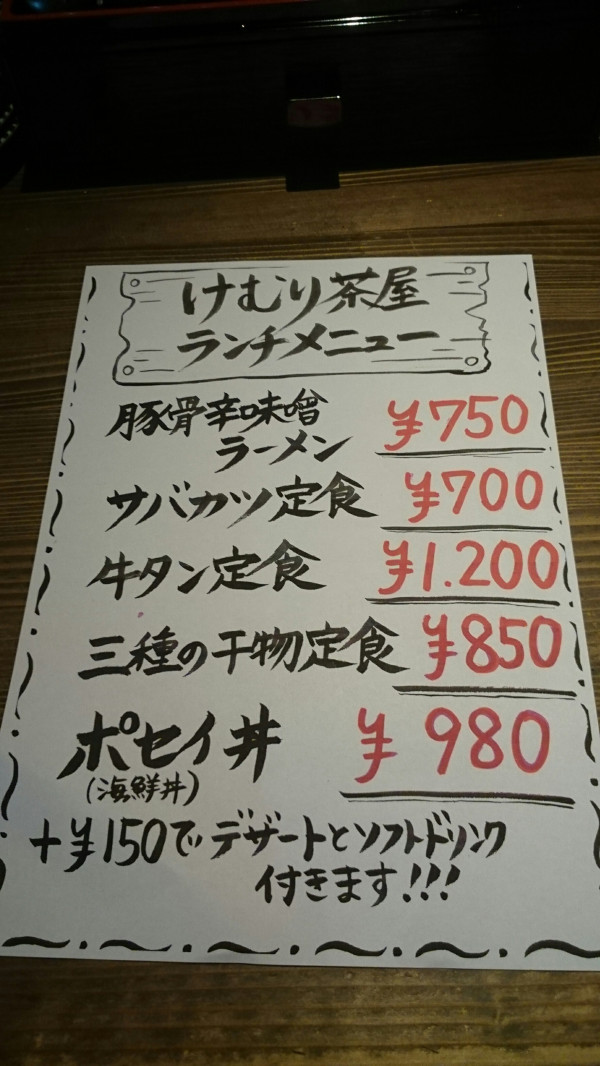 けむり茶屋
ランチメニュー
豚骨辛味噌
ラーメン ¥750
サバカツ定食 ¥700
牛タン定食 ¥1.200
三種の干物定食 ¥850
ポセイ丼 ¥980
(海鮮丼)
+¥150でデザートとソフトドリンク
付きます!!!